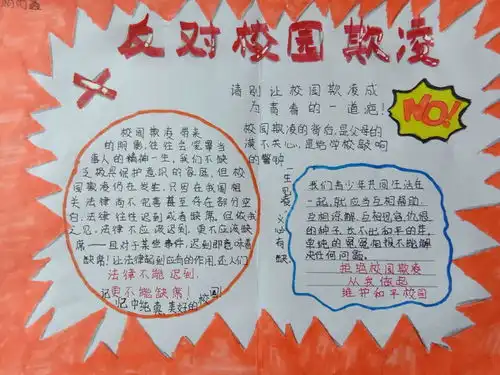 反对校园欺凌
请别让校园欺凌成
为青春的一道疤!
NO!
校园欺凌的背后,是父母的
漠不关心,是给学校敲响
的警钟
校园欺凌带来
的阴影,往往会笼罩当
事人的精神一生,我们不缺
乏教
保护意识的家庭,但校
园欺凌仍在发生,只因在我国相
关法律尚不完善甚至存在部分空
白,法律往往迟到或者缺席。但依我
之见,法律不应该迟到,更不应该缺
席——且对于某些事件,迟到即意味着
缺席!让法律起到应有的作用,还人们
法律不能迟到,
更不能缺席!
记
记中纯真、美好的校园
一生见
必有缺
我们青少年共同生活在
一起,就应当互相帮助,
互相谅解,互相包容,仇恨
的种子长不出和平的芽,
单纯的冤冤相报不能解
决任何问题。
拒绝校园欺凌
从我做起
维护和平校园